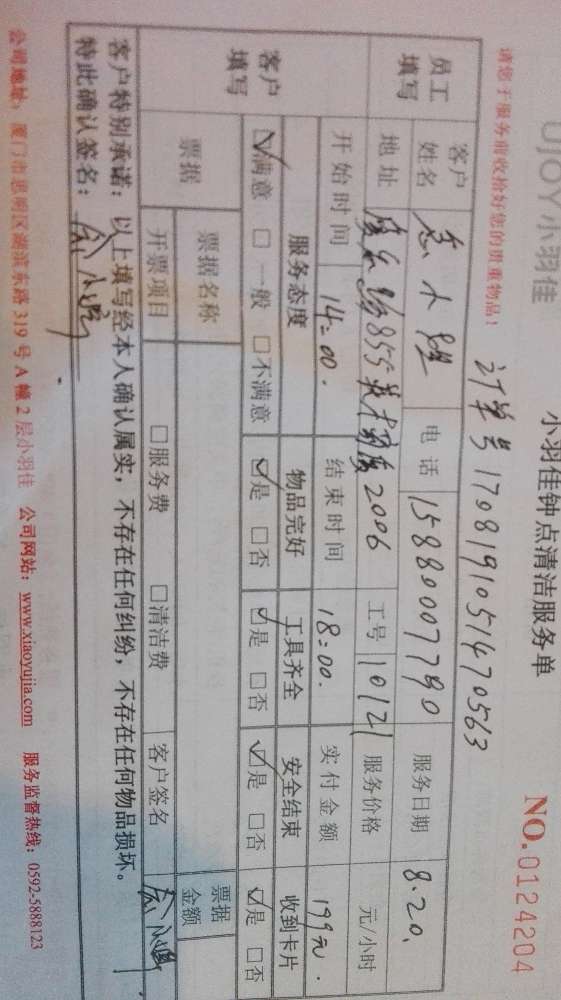 UJOY小羽佳
小羽佳钟点清洁服务单
NO.0124204
请您于服务前收拾好您的贵重物品!
订单号1708191051470563
员工填写
客户姓名 小 电话 15880007790 服务日期 8.20.
地址 855 2006 工号 10121 服务价格 元/小时
客户填写
开始时间 14:00. 结束时间 18:00. 实付金额 199元.
服务态度 物品完好 工具齐全 安全结束 收到卡片
☑满意 □一般 □不满意 ☑是 □否 ☑是 □否 ☑是 □否 ☑是 □否
票据 票据名称 票据金额
开票项目 □服务费 □清洁费 客户签名
客户特别承诺:以上填写经本人确认属实,不存在任何纠纷,不存在任何物品损坏。
特此确认签名:
公司地址:厦门市思明区湖滨东路319号A幢2层小羽佳 公司网站:www.xiaoyujia.com 服务监督热线:0592-5888123